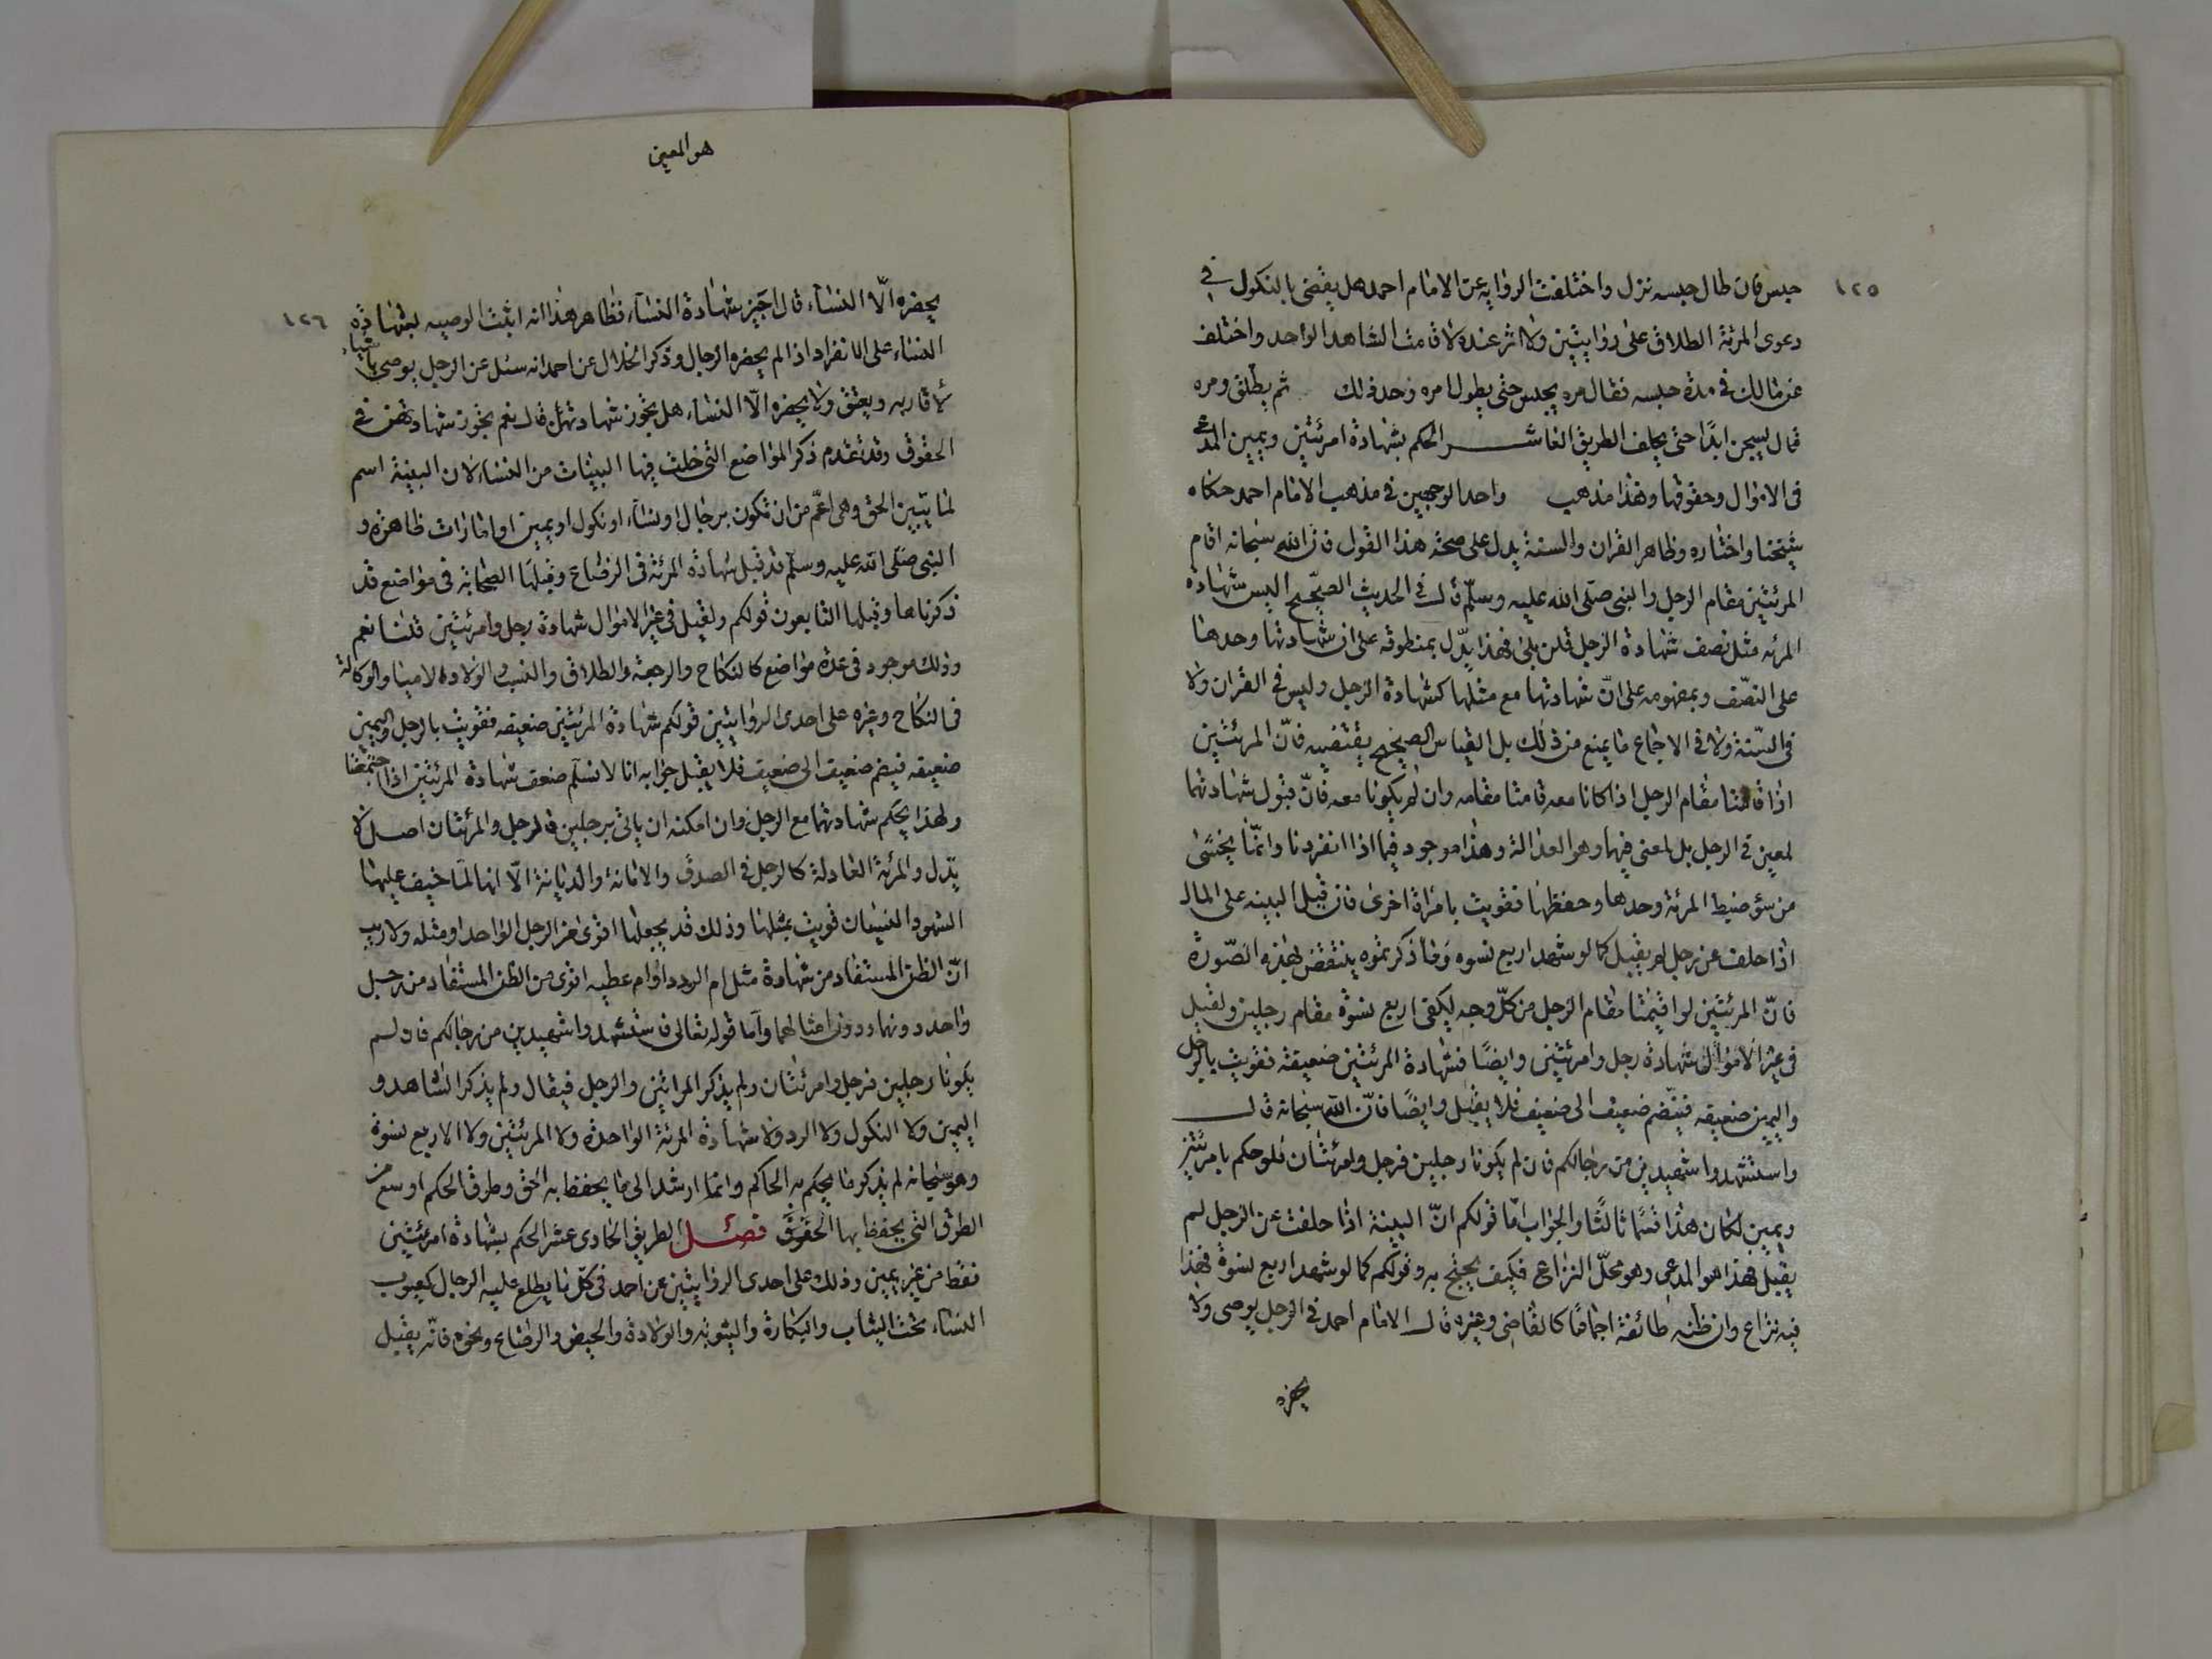 ١٢٥
حبس فان طال حبسه نزل واختلفت الروايه عن الامام احمد هل يقضى بالنكول في
دعوى المرئة الطلاق على روايتين ولا اثر عنده لاقامت الشاهد الواحد واختلف
عن مالك في مدة حبسه فقال مره يحبس حتى يطول امره وحد ذلك ثم يطلق ومره
قال يسجن ابدًا حتى يحلف الطريق العاشر الحكم بشهادة امرئتين ويمين المدعى
في الاموال وحقوقها وهذا مذهب واحد الوجهين في مذهب الامام احمد حكاه
شيخنا واختاره وظاهر القران والسنة يدل على صحة هذا القول فان الله سبحانه اقام
المرئتين مقام الرجل والنبى صلى الله عليه وسلّم قال في الحديث الصحيح اليس شهادة
المرئه مثل نصف شهادة الرجل قلن بلى فهذا يدّل بمنطوقه على ان شهادتها وحدها
على النصّف وبمفهومه على انّ شهادتها مع مثلها كشهادة الرجل وليس في القران ولا
في السّنة ولا في الاجماع ما يمنع من ذلك بل القياس الصحيح يقتضيه فانّ المرئتين
اذا قامتا مقام الرجل اذا كانا معه قامتا مقامه وان لم يكونا معه فانّ قبول شهادتهما
لمعين في الرجل بل لمعنى فيهما وهو العدالة وهذا موجود فيما اذا انفردتا وانّما يخشى
من سؤ ضبط المرئة وحدها وحفظها فقويت بامراة اخرى فان قيل البينه على المال
اذا حلفت عن رجل لم يقبل كما لو شهد اربع نسوه وما ذكرتموه ينتقض بهذه الصّورة
فانّ المرئتين لو اقيمتا مقام الرجل من كلّ وجه لكفى اربع نسوة مقام رجلين ولقبل
في غير الاموال شهادة رجل وامرئتين وايضًا فشهادة المرئتين ضعيفة فقويت بالرجل
واليمين ضعيفه فيضّم ضعيف الى ضعيف فلا يقبل وايضًا فانّ الله سبحانه قال
واستشهدوا شهيدين من رجالكم فان لم يكونا رجلين فرجل وامرئتان فلو حكم بامرئتين
ويمين لكان هذا قسمًا ثالثًا والجواب امّا قولكم انّ البينة اذا خلفت عن الرجل لم
يقبل فهذا هو المدعى وهو محلّ النزاع فكيف يحتج به وقولكم كما لو شهد اربع نسوة فهذا
فيه نزاع وان ظنه طائفة اجماعًا كالقاضى وغيره قال الامام احمد في الرجل يوصى ولا
يحضره
هو المعين
١٢٦
يحضره الّا النساء قال اجيز شهادة النسآء فظاهر هذا انه اثبت الوصيه بشهادة
النساء على الانفراد اذا لم يحضره الرجال وذكر الخلال عن احمد انه سئل عن الرجل يوصى باشياء
لأقاربه ويعتق ولا يحضره الّا النساء هل تجوز شهادتهن قال نعم تجوز شهادتهن في
الحقوق وقد تقدم ذكر المواضع التى خلت فيها البينات من النساء لان البينة اسم
لما يبين الحق وهى اعّم من ان تكون برجال او نساء او نكول او يمين او امارات ظاهره و
النبى صلى الله عليه وسلّم قد قبل شهادة المرئة في الرضاع وقبلها الصحابة في مواضع قد
ذكرناها وقبلها التابعون قولكم ولقبل في غير الاموال شهادة رجل وامرئتين قلنا نعم
وذلك موجود في عدة مواضع كالنكاح والرجعة والطلاق والنسب والولادة لاميا والوكالة
في النكاح وغيره على احدى الروايتين قولكم شهادة المرئتين ضعيفه فقويت بالرجل واليمين
ضعيفه فيضم ضعيف الى ضعيف فلا يقبل جوابه انا لا نسلّم ضعف شهادة المرئتين اذا اجتمعتا
ولهذا يحكم بشهادتهما مع الرجل وان امكنه ان ياتى برجلين فالرجل والمرئتان اصل لا
بّدل والمرئة العادلة كالرجل في الصدق والامانة والديانة الّا انها لمّا خيف عليها
السهو والنسيان قويت بمثلها وذلك قد يجعلها اقوى من الرجل الواحد او مثله ولا ريب
انّ الظن المستفاد من شهادة مثل ام الدرداء وام عطيه اقوى من الظن المستفاد من رجل
واحد دونهما ودون امثالهما وامّا قوله تعالى فاستشهدوا شهيدين من رجالكم فان لم
يكونا رجلين فرجل وامرئتان ولم يذكر المراتين والرجل فيقال ولم يذكر الشاهد و
اليمين ولا النكول ولا الرد ولا شهادة المرئة الواحدة ولا المرئتين ولا الاربع نسوة
وهو سبحانه لم يذكر ما يحكم به الحاكم وانما ارشد الى ما يحفظ به الحق وطرق الحكم اوسع من
الطرق التى يحفظ بها الحقوق فصل الطريق الحادى عشر الحكم بشهادة امرئتين
فقط من غير يمين وذلك على احدى الروايتين عن احمد في كلّ ما لا يطلع عليه الرجال كعيوب
النساء تحت الثياب والبكارة والثيوبه والولادة والحيض والرضاع ونحوه فانّه يقبل